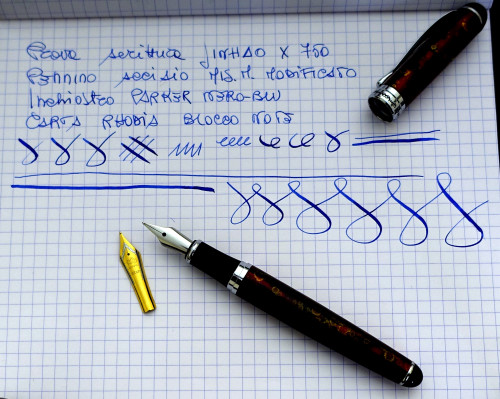 Prova scrittura JINHAO X 750
PENNINO acciaio MIS. M MODIFICATO
Inchiostro PARKER NERO-BLU
CARTA RHODIA BLOCCO NOTE